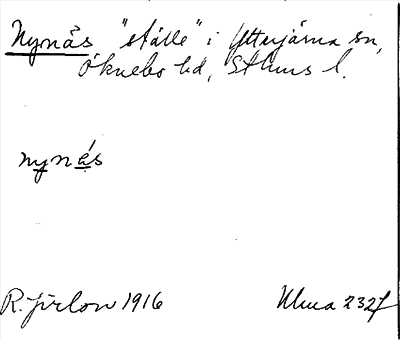 Nynäs "ställe" i Ytterjärna sn,
Öknebo hd, Sthms l.
nynǽs
R. Jirlow 1916
Ulma 232f